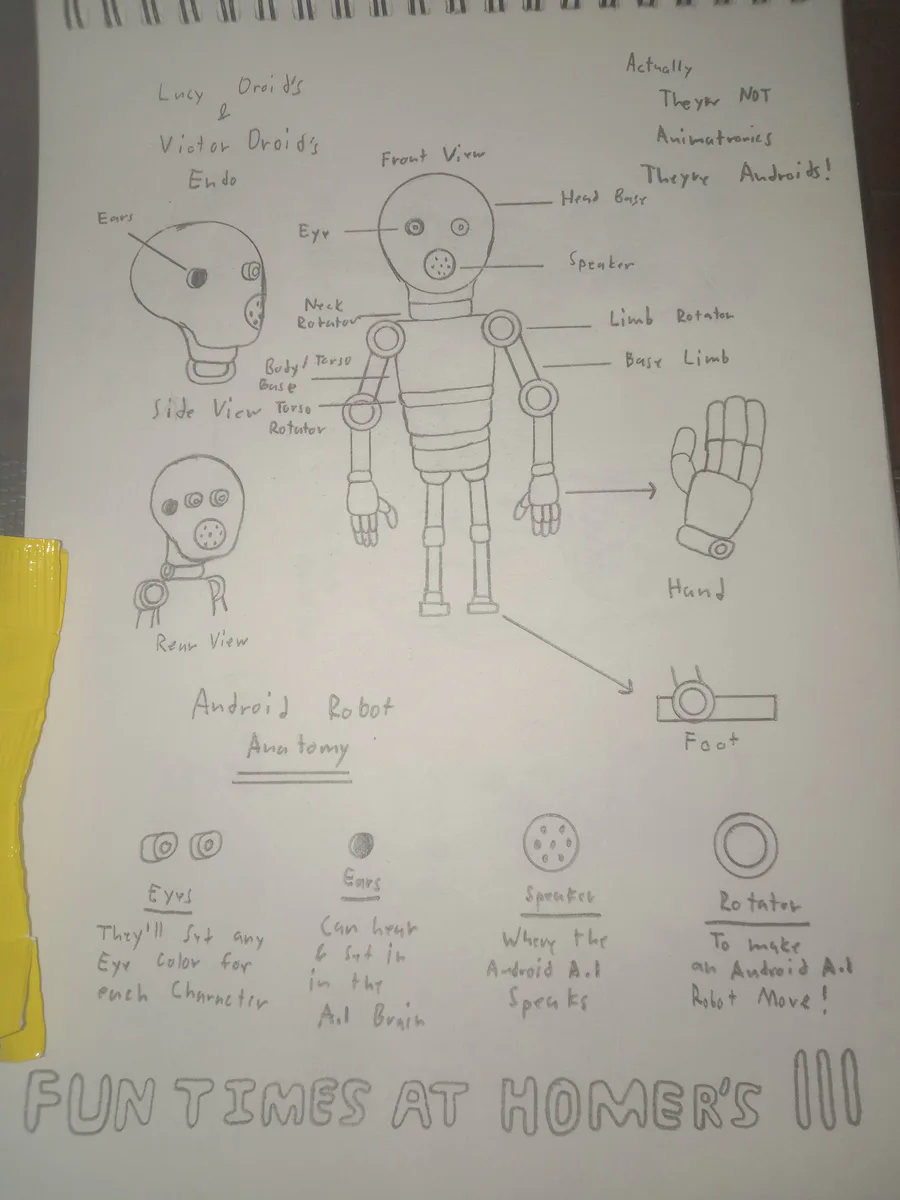 Lucy Droid's
&
Victor Droid's
Endo
Actually
They're NOT
Animatronics
They're Androids!
Front View
Head Base
Eye
Speaker
Ears
Neck
Rotator
Limb Rotator
Body/Torso
Base
Base Limb
Torso
Rotator
Side View
Hand
Rear View
Foot
Android Robot
Anatomy
Eyes
They'll Set any
Eye Color for
each Character
Ears
Can hear
& Set in
in the
A.I Brain
Speaker
Where the
Android A.I
Speaks
Rotator
To make
an Android A.I
Robot Move!
FUN TIMES AT HOMER'S III